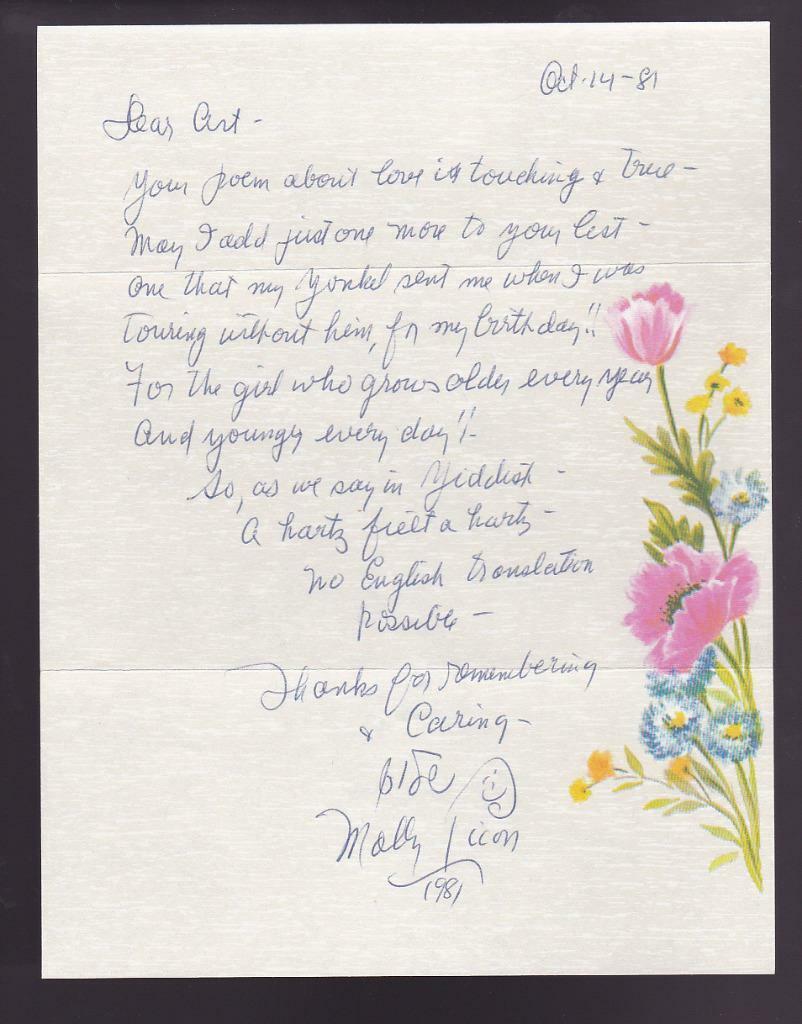 Oct. 14-81
Dear Art -
Your poem about love is touching & true -
May I add just one more to your list -
one that my Yonkel sent me when I was
touring without him, for my birthday!!
For the girl who grows older every year
And younger every day!!
So, as we say in Yiddish -
A hartz fielt a hartz -
no English translation
possible -
Thanks for remembering
& Caring -
שלום
Molly Picon
1981